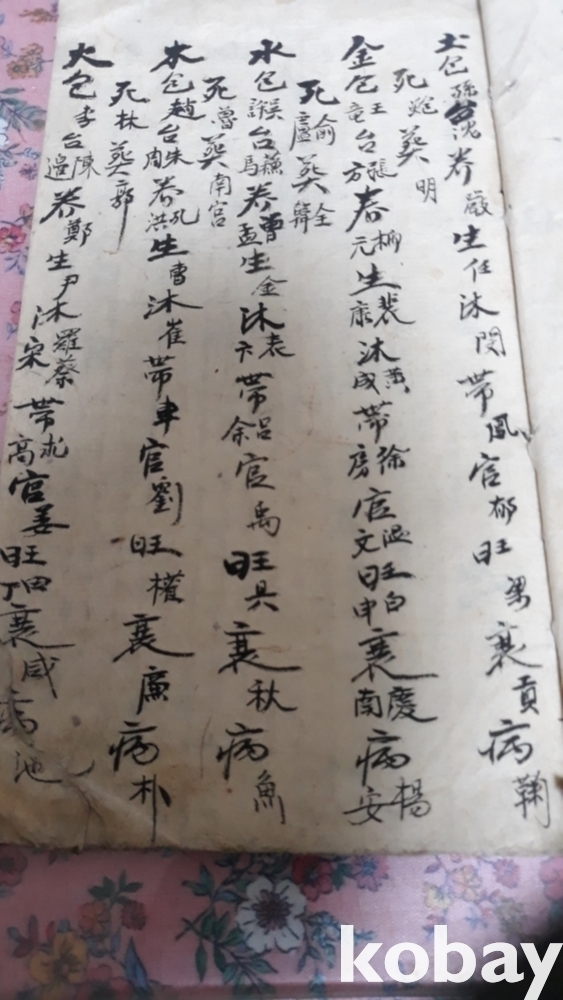 土包孫台沈养嚴生任沐閔帶鳳官郁旺梁衰貢病鞠
死葬明
金包王竜台張方春柳元生裴康沐黄成帶徐房官温文旺白申衰慶南病楊安
死俞盧葬全
水包台蘇馬养曺孟生金沐袁卞帶呂余官禹旺具衰秋病魚
死曽葬南宮
木包趙台朱周养孔洪生曹沐崔帶車官劉旺權衰廉病朴
死林葬郭
火包李台陳邊养鄭生尹沐羅蔡宋帶高官姜旺田丁衰咸病池
kobay